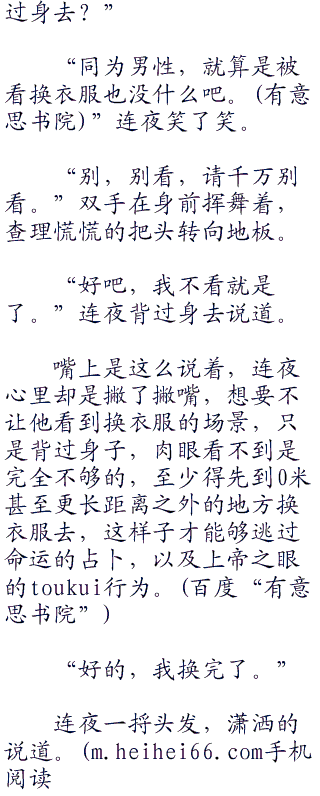 过身去？”
“同为男性，就算是被
看换衣服也没什么吧。(有意
思书院)”连夜笑了笑。
“别，别看，请千万别
看。”双手在身前挥舞着，
查理慌慌的把头转向地板。
“好吧，我不看就是
了。”连夜背过身去说道。
嘴上是这么说着，连夜
心里却是撇了撇嘴，想要不
让他看到换衣服的场景，只
是背过身子，肉眼看不到是
完全不够的，至少得先到0米
甚至更长距离之外的地方换
衣服去，这样子才能够逃过
命运的占卜，以及上帝之眼
的toukui行为。(百度“有意
思书院”)
“好的，我换完了。”
连夜一捋头发，潇洒的
说道。(m.heihei66.com手机
阅读